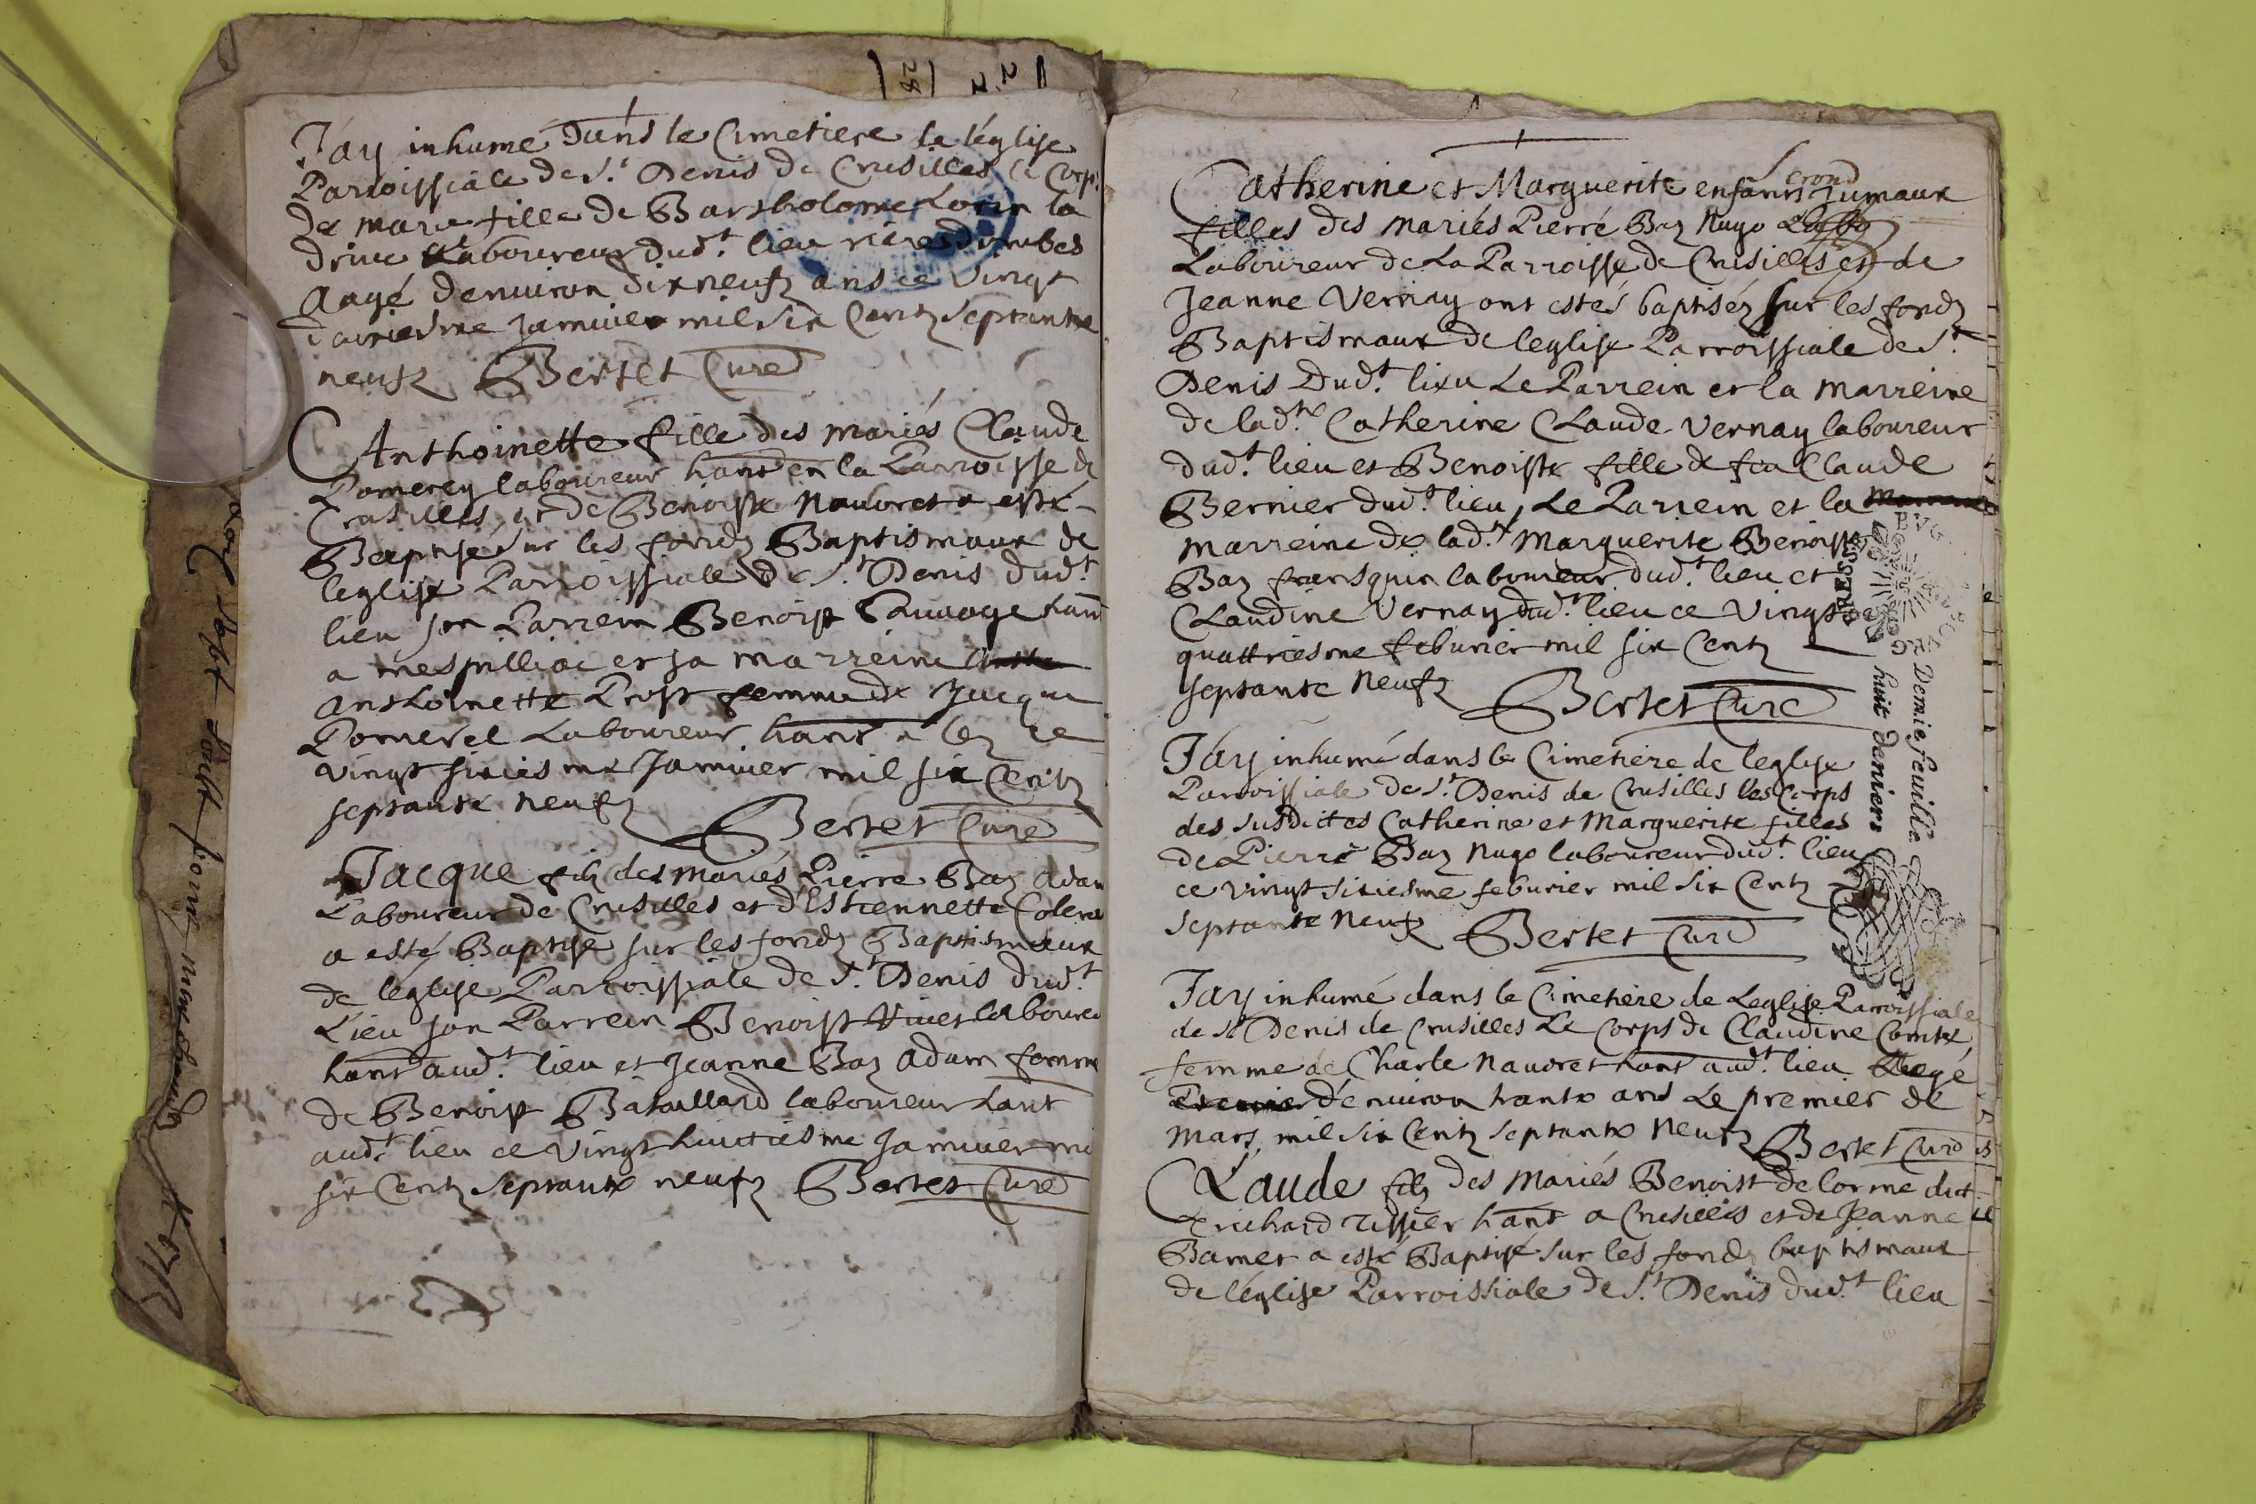 28
22
J'ay inhumé dans le Cimetiere de léglise
Parroissiale de St Denis de Crusilles le Corps
de marie fille de Bartholome
laboureur dudt lieu
Aagé denuiron dixneufz ans ce vingt
januier mil six Centz septante
neufz Bertet Curé
Anthoinette fille des mariés Claude
Pomerey laboureur hant en la Parroisse de
Crusilles, et de Benoiste Nauoret a esté
Baptisé sur les fondz Baptismaux de
leglise Parroissiale de St Denis dudt
lieu son Parrein Benoist Sauuage hant
a mespilliac et sa marreine
Anthoinette Prost femme de Jacque
Pomerel Laboureur hant a ce
vingt sixiesme Januier mil six Centz
septante neufz
Bertet Curé
Jacque filz des Mariés Pierre Baz Adam
Laboureur de Crusilles et d'Estiennette
a esté Baptisé sur les fondz Baptismaux
de léglise Parroissiale de St Denis dudt
Lieu son Parrein Benoist Viuet laboureu
hant audt lieu et Jeanne Baz Adam femme
de Benoist Bataillard laboureur hant
audt lieu ce vingt huictiesme Januier mil
six Centz septante neufz Bertet Curé
Catherine et Marguerite enfants Jumaux
filles des Mariés Pierre Baz Nugo
Laboureur de La Parroisse de Crusilles et de
Jeanne Vernay ont estés baptiséz sur les fondz
Baptismaux de leglise Parroissiale de St
Denis Dudt lieu Le Parrein et la marreine
de ladte Catherine Claude Vernay laboureur
dudt lieu et Benoiste fille de feu Claude
Bernier dudt lieu, Le Parrein et la
marreine de ladte Marguerite Benoist
Baz laboureur dudt lieu et
Claudine Vernay dudt lieu ce vingt
quattriesme feburier mil six Centz
septante neufz
Bertet Curé
J'ay inhumé dans le Cimetiere de leglise
Parroissiale de St Denis de Crusilles les Corps
des susdittes Catherine et Marguerite filles
de Pierre Baz Nugo laboureur dudt lieu
ce vingt sixiesme feburier mil six Centz
septante neufz Bertet Curé
J'ay inhumé dans le Cimetiere de Leglise Parroissiale
de St Denis de Crusilles Le Corps de Claudine Comte
femme de Charle Nauoret hant audt lieu Aagé
d'enuiron trante ans Le premier de
Mars mil six Centz septante neufz Bertet Curé
Claude filz des Mariés Benoist delorme dict
richard tissier hant a Crusilles et de Jeanne
Bamet a esté Baptisé sur les fondz baptismaux
de léglise Parroissiale de St Denis dudt lieu
Demie feuille
huit deniers